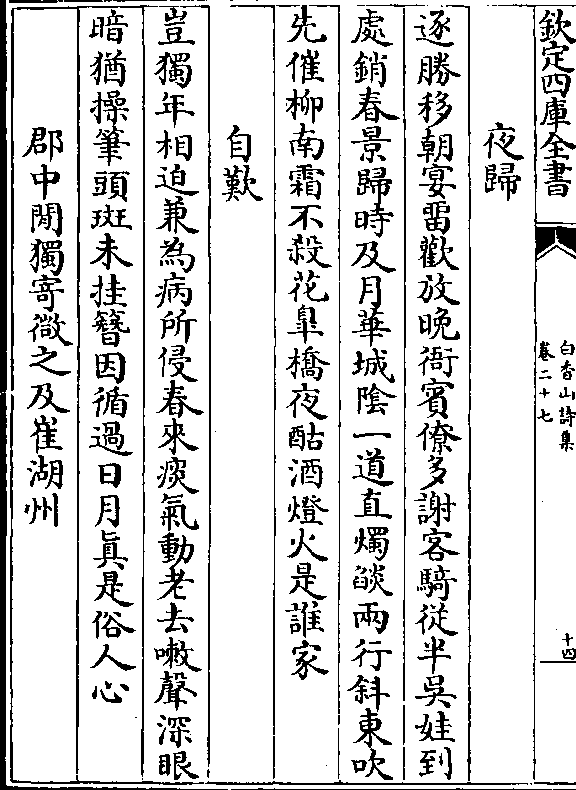 欽定四庫全書
白香山詩集
卷二十七
十四
夜歸
逐勝移朝宴留歡放晚衙賓僚多謝客騎從半吳娃到
處銷春景歸時及月華城陰一道直燭燄兩行斜東吹
先催柳南霜不殺花臯橋夜酤酒燈火是誰家
自歎
豈獨年相迫兼為病所侵春來痰氣動老去嗽聲深眼
暗猶操筆頭斑未挂簪因循過日月眞是俗人心
郡中閒獨寄微之及崔湖州